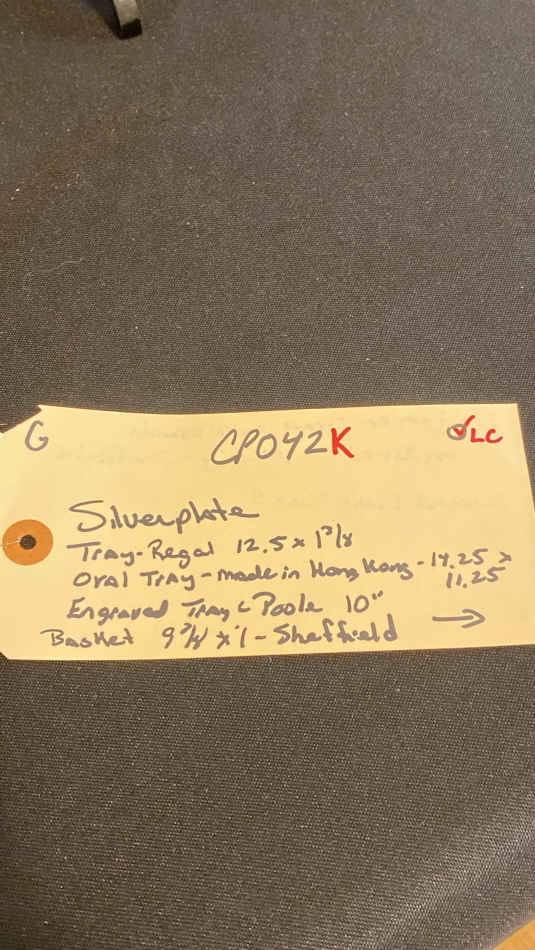 G CP042K ✓LC
Silverplate
Tray-Regal 12.5 x 1 3/8
Oval Tray - made in Hong Kong - 14.25 x
11.25
Engraved Tray - Poole 10"
Basket 9 3/8 x 1 - Sheffield →